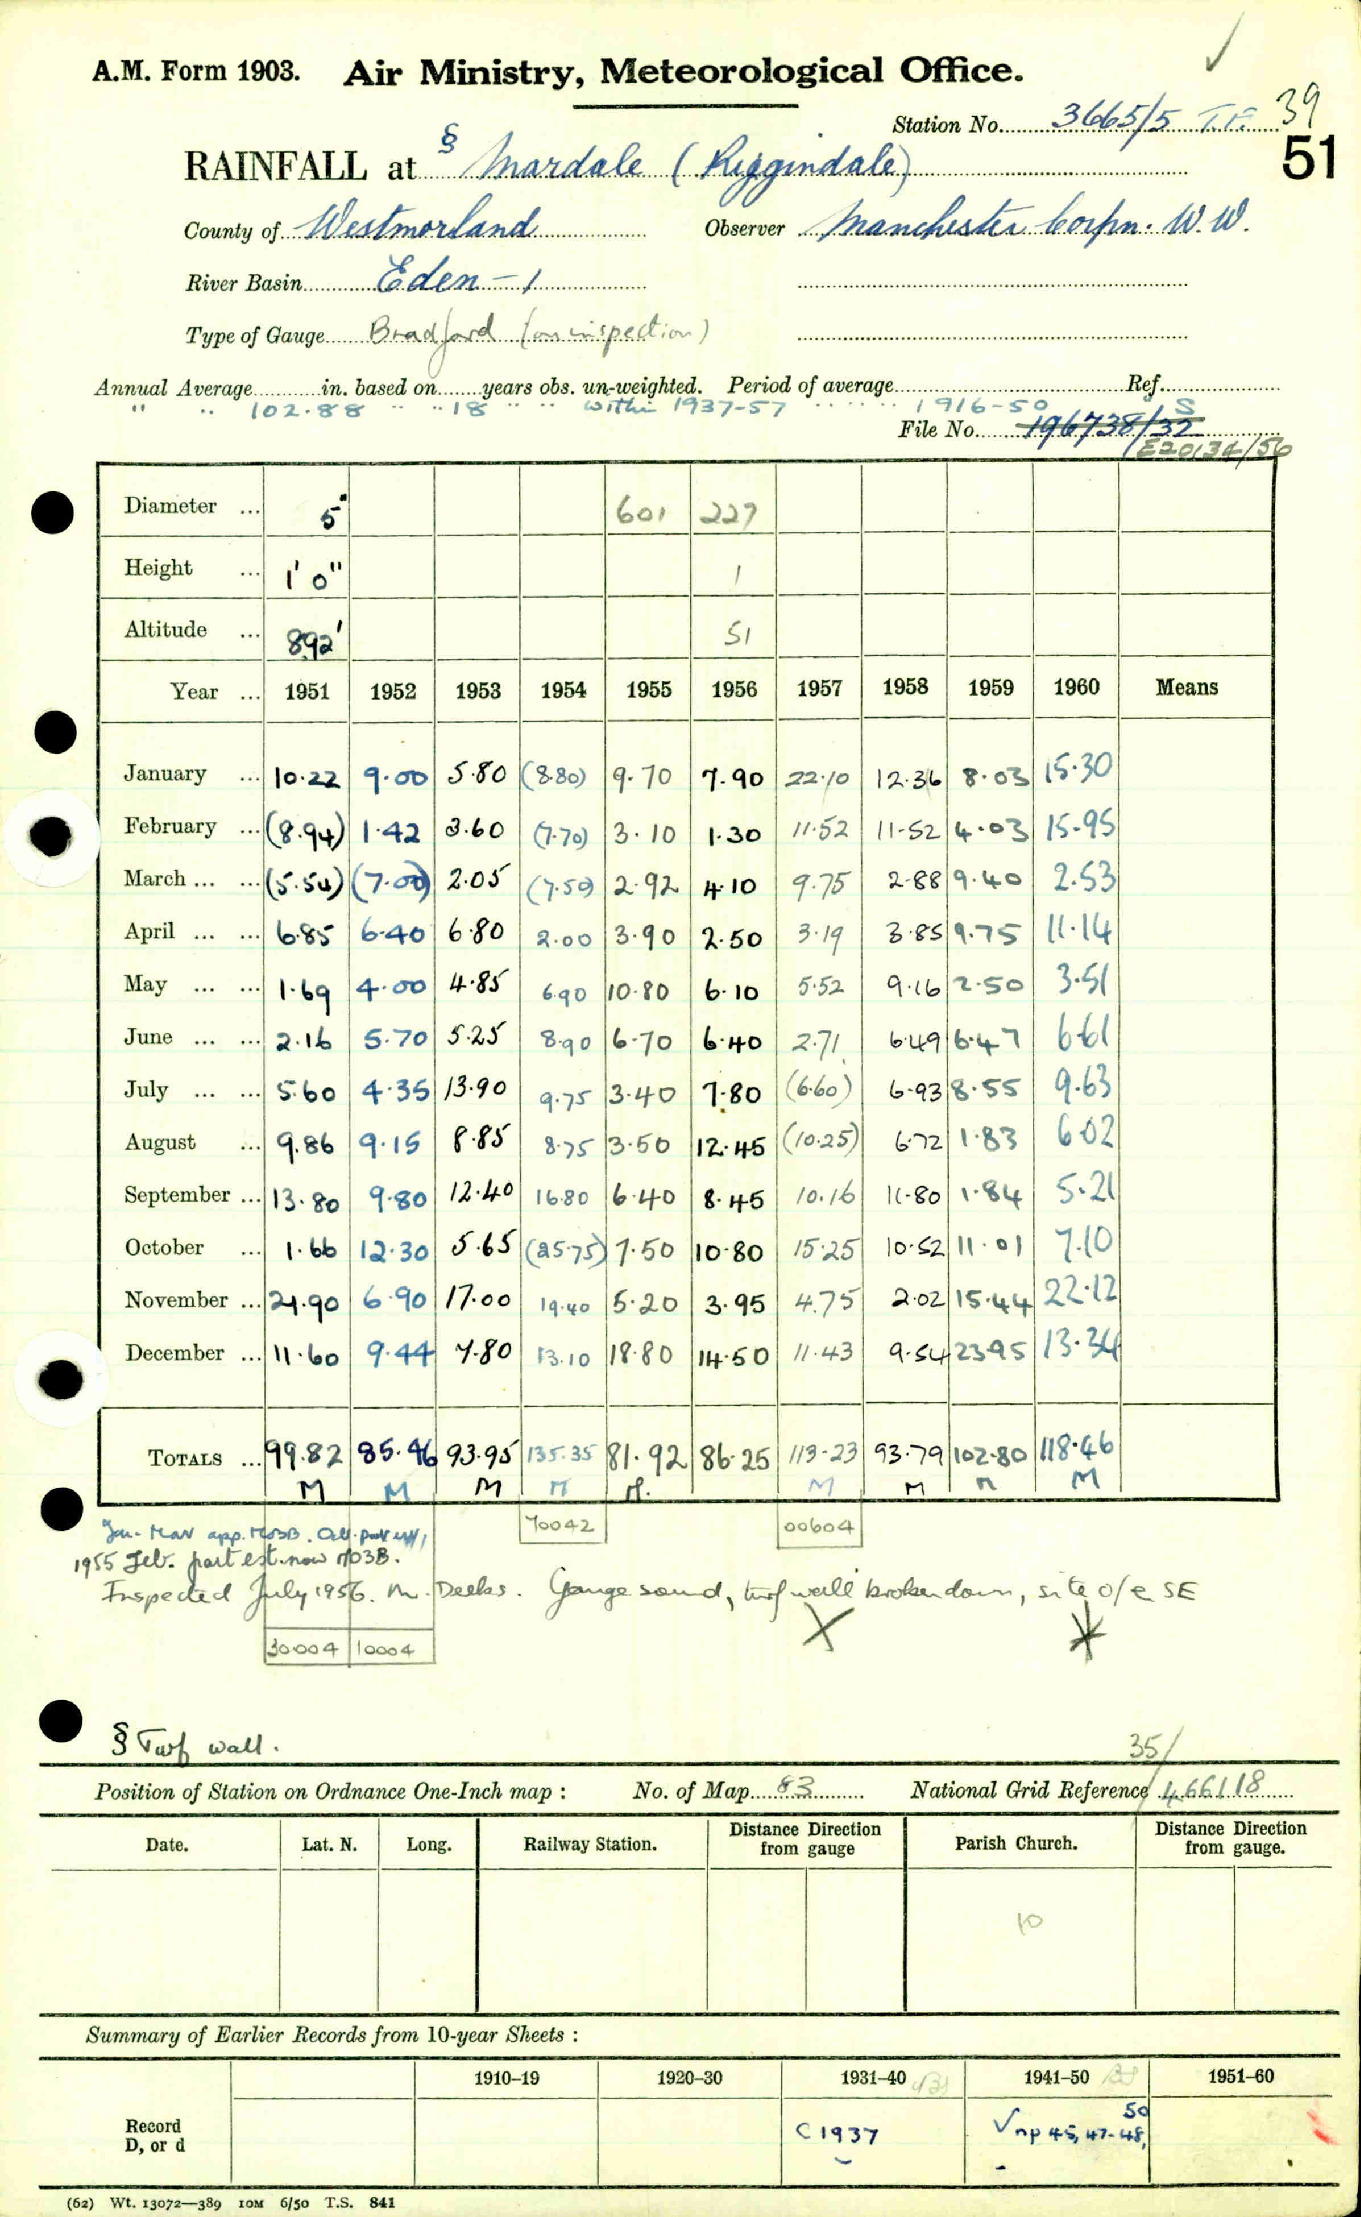 A.M. Form 1903. Air Ministry, Meteorological Office.
39
Station No. 3665/5 T.F.
51
RAINFALL at § Mardale (Riggindale)
County of Westmorland Observer Manchester Corpn. W.W.
River Basin Eden-1
Type of Gauge Bradford (on inspection)
Annual Average in. based on years obs. un-weighted. Period of average Ref.
" " 102.88 " " 18 " " within 1937-57 " " " 1916-50 S
File No. 196738/32
E20134/56
Diameter ... 5" 601 227
Height ... 1' 0" 1
Altitude ... 892' 51
Year ... 1951 1952 1953 1954 1955 1956 1957 1958 1959 1960 Means
January ... 10.22 9.00 5.80 (8.80) 9.70 7.90 22.10 12.36 8.03 15.30
February ... (8.94) 1.42 3.60 (7.70) 3.10 1.30 11.52 11.52 4.03 15.95
March ... ... (5.54) (7.00) 2.05 (7.50) 2.92 4.10 9.75 2.88 9.40 2.53
April ... ... 6.85 6.40 6.80 2.00 3.90 2.50 3.19 3.85 9.75 11.14
May ... ... 1.69 4.00 4.85 6.90 10.80 6.10 5.52 9.16 2.50 3.51
June ... ... 2.16 5.70 5.25 8.90 6.70 6.40 2.71 6.49 6.47 6.61
July ... ... 5.60 4.35 13.90 9.75 3.40 7.80 (6.60) 6.93 8.55 9.63
August ... 9.86 9.15 8.85 8.75 3.50 12.45 (10.25) 6.72 1.83 6.02
September ... 13.80 9.80 12.40 16.80 6.40 8.45 10.16 11.80 1.84 5.21
October ... 1.66 12.30 5.65 (25.75) 7.50 10.80 15.25 10.52 11.01 7.10
November ... 21.90 6.90 17.00 19.40 5.20 3.95 4.75 2.02 15.44 22.12
December ... 11.60 9.44 7.80 13.10 18.80 14.50 11.43 9.54 23.95 13.34
TOTALS ... 99.82 85.46 93.95 135.35 81.92 86.25 113.23 93.79 102.80 118.46
M M M M M. M M M M
70042 00604
Jan. Mar app.
1955 Feb. part est. now
Inspected July 1956. M. Deeks. Gauge sound, turf wall broken down, site o/e SE
30004 10004
§ Turf wall.
35/
Position of Station on Ordnance One-Inch map : No. of Map 83 National Grid Reference 466118
Date. Lat. N. Long. Railway Station. Distance from gauge Direction Parish Church. Distance from gauge. Direction
10
Summary of Earlier Records from 10-year Sheets :
1910–19 1920–30 1931–40 1941–50 1951–60
Record D, or d C 1937 √ np 45, 47-48, 50
(62) Wt. 13072—389 10M 6/50 T.S. 841